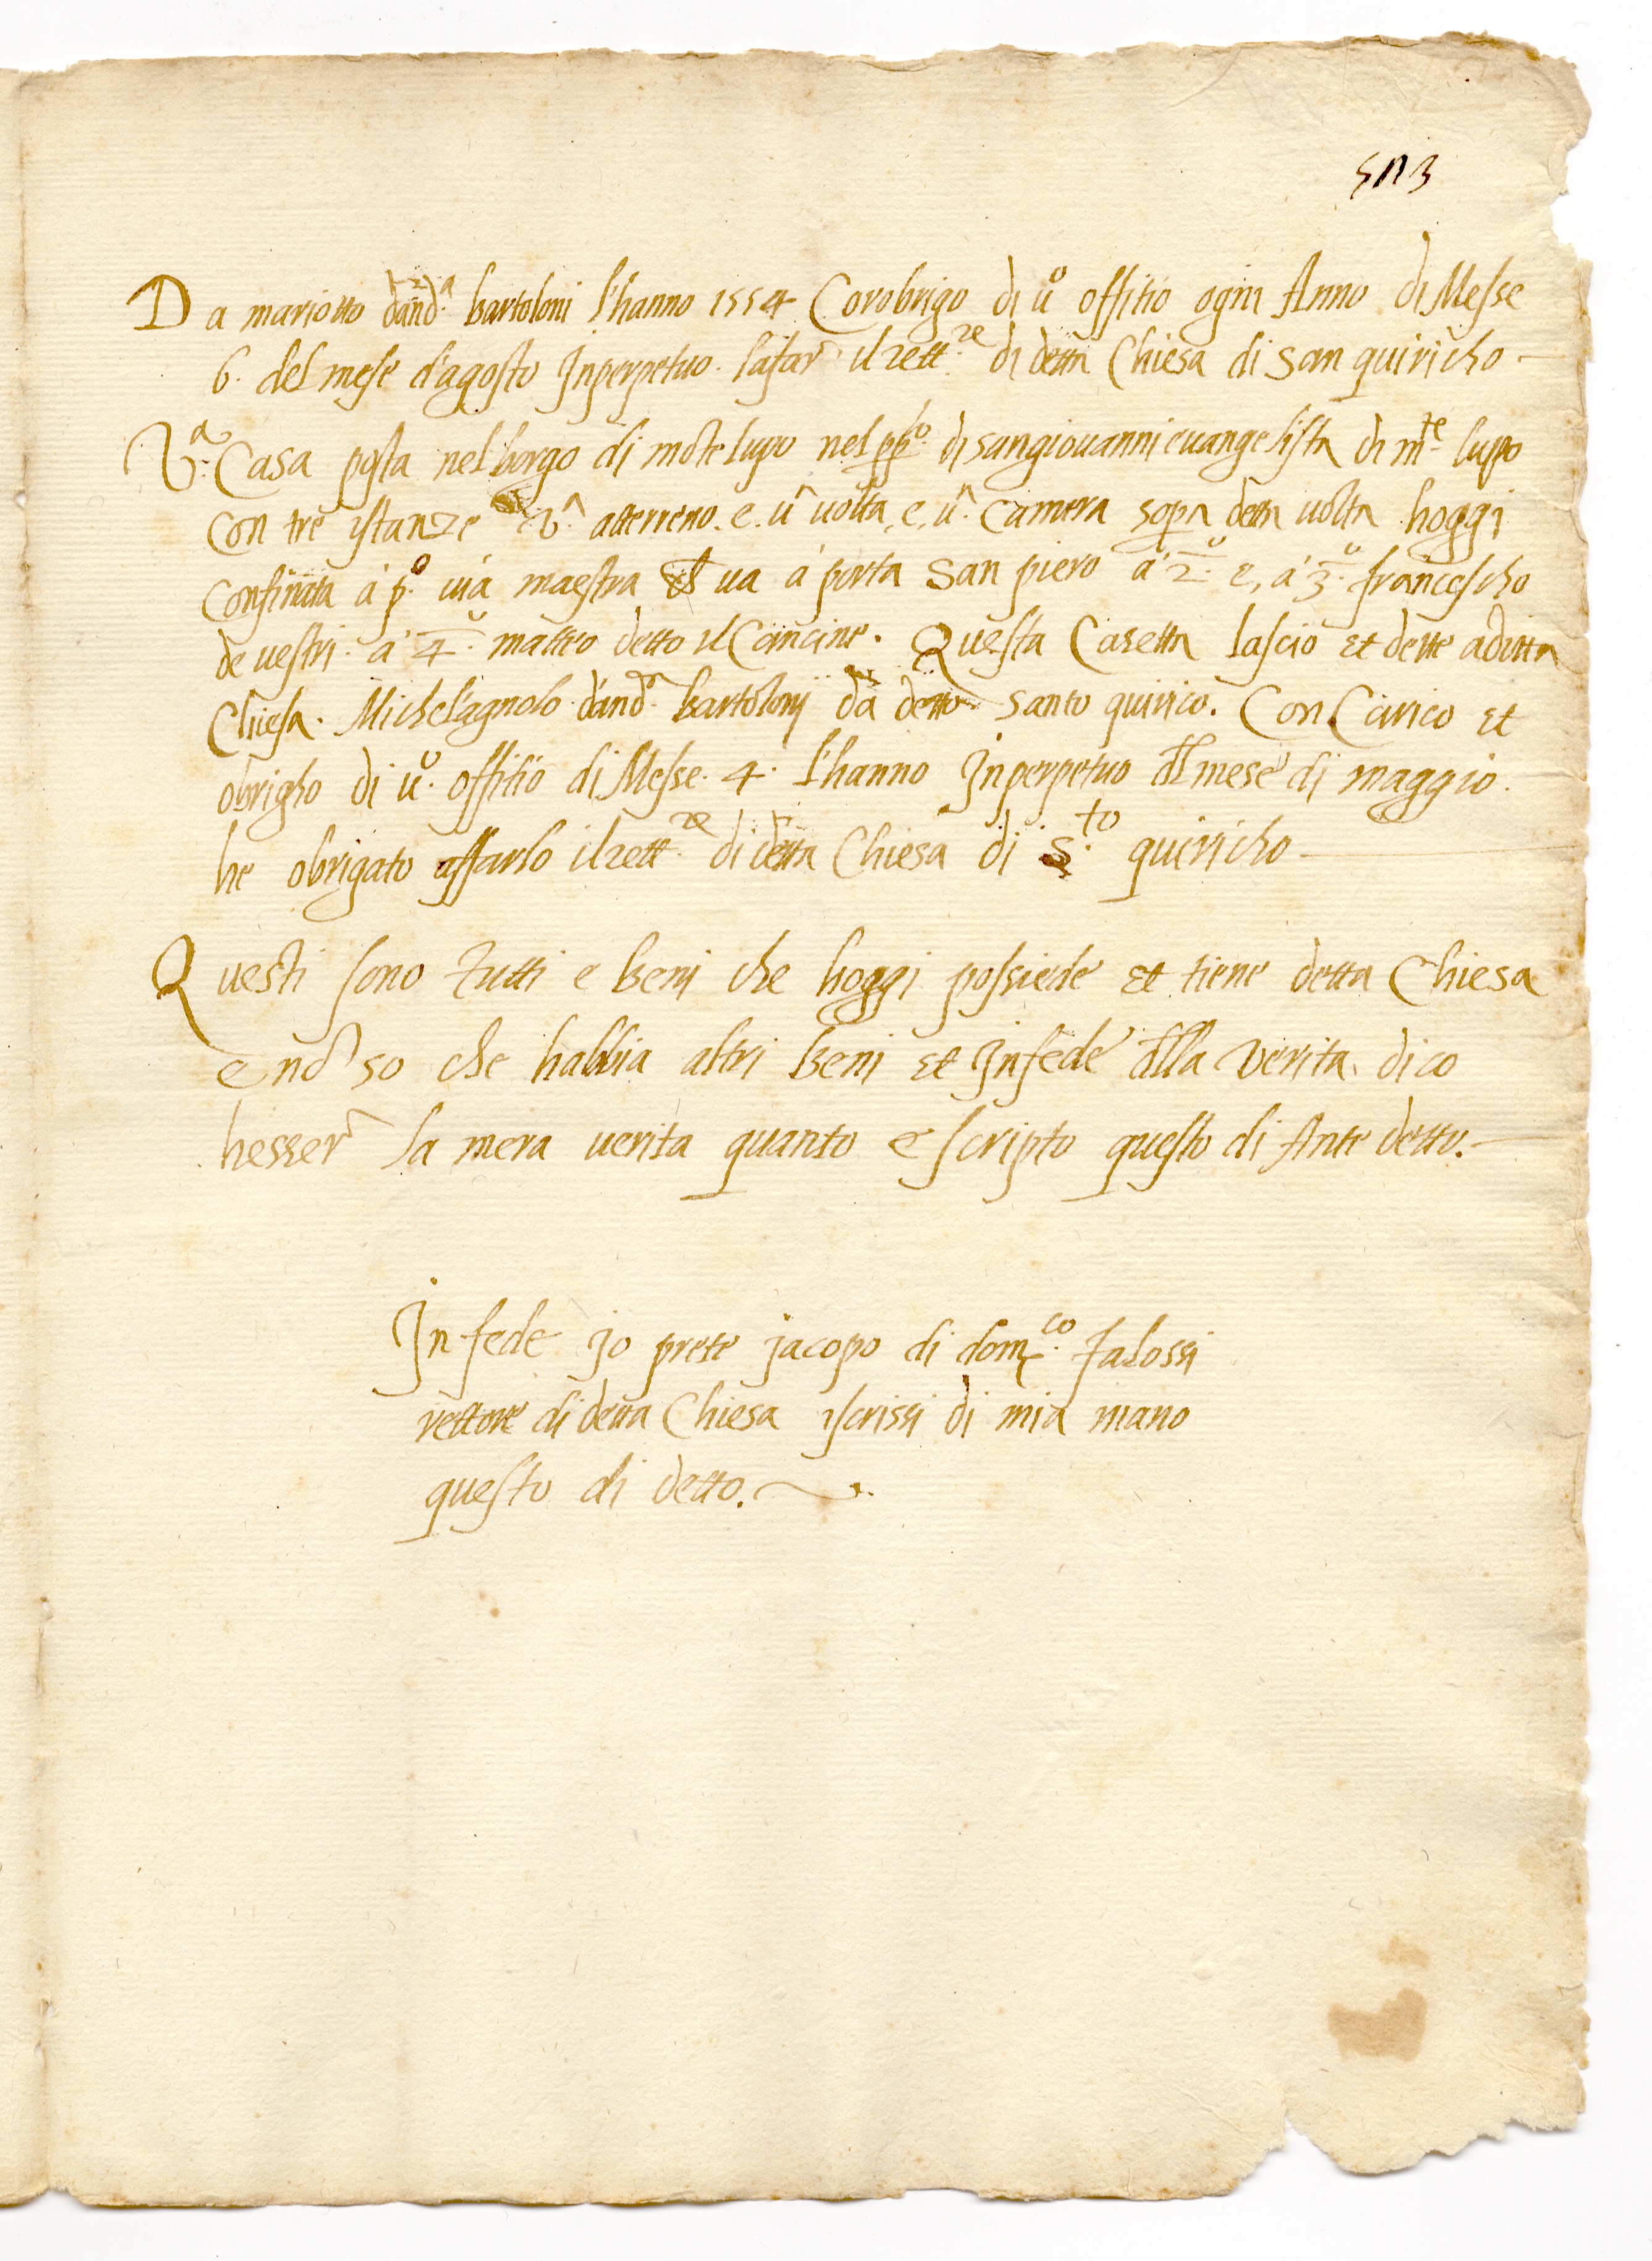 503
Da mariotto d'and.ª bartoloni l'hanno 1554 Cõ obrigo di ũº offitio ogni Anno di Messe
6. del mese d'agosto Inperpetuo. lafar il rett.re di detta Chiesa di San quiricho
V.ª Casa posta nel borgo di mõte lupo nel pp.º di sangiouanni euangelista di m.te lupo
Con tre istanze v.ª atterreno. e. ũª uolta, e, ũª. Camera sopra detta uolta hoggi
Confinata à p.º uià maestra ua à porta San piero à 2.º e, à 3.º francescho
de uestri. à 4.º matteo detto il Cancine. Questa Casetta lasciò et dette aditta
Chiesa. Michelagnolo d'and.ª bartolonj da detto Santo quirico. Con Carico et
obrigho di ũº. offitio di Messe. 4. l'hanno Inperpetuo dl mese di maggio.
he obrigato affarlo il rett.re di detta Chiesa di S.to quiricho
Questi sono tutti e benj che hoggi possiede et tiene detta Chiesa
e nõ so che habbia altri benj et Infede dlla verita. dico
hesser la mera uerita quanto e scripto questo di Ante detto.
In fede Jo prete jacopo di dom.co falossi
rettore di detta Chiesa iscrissi di mia mano
questo di detto.